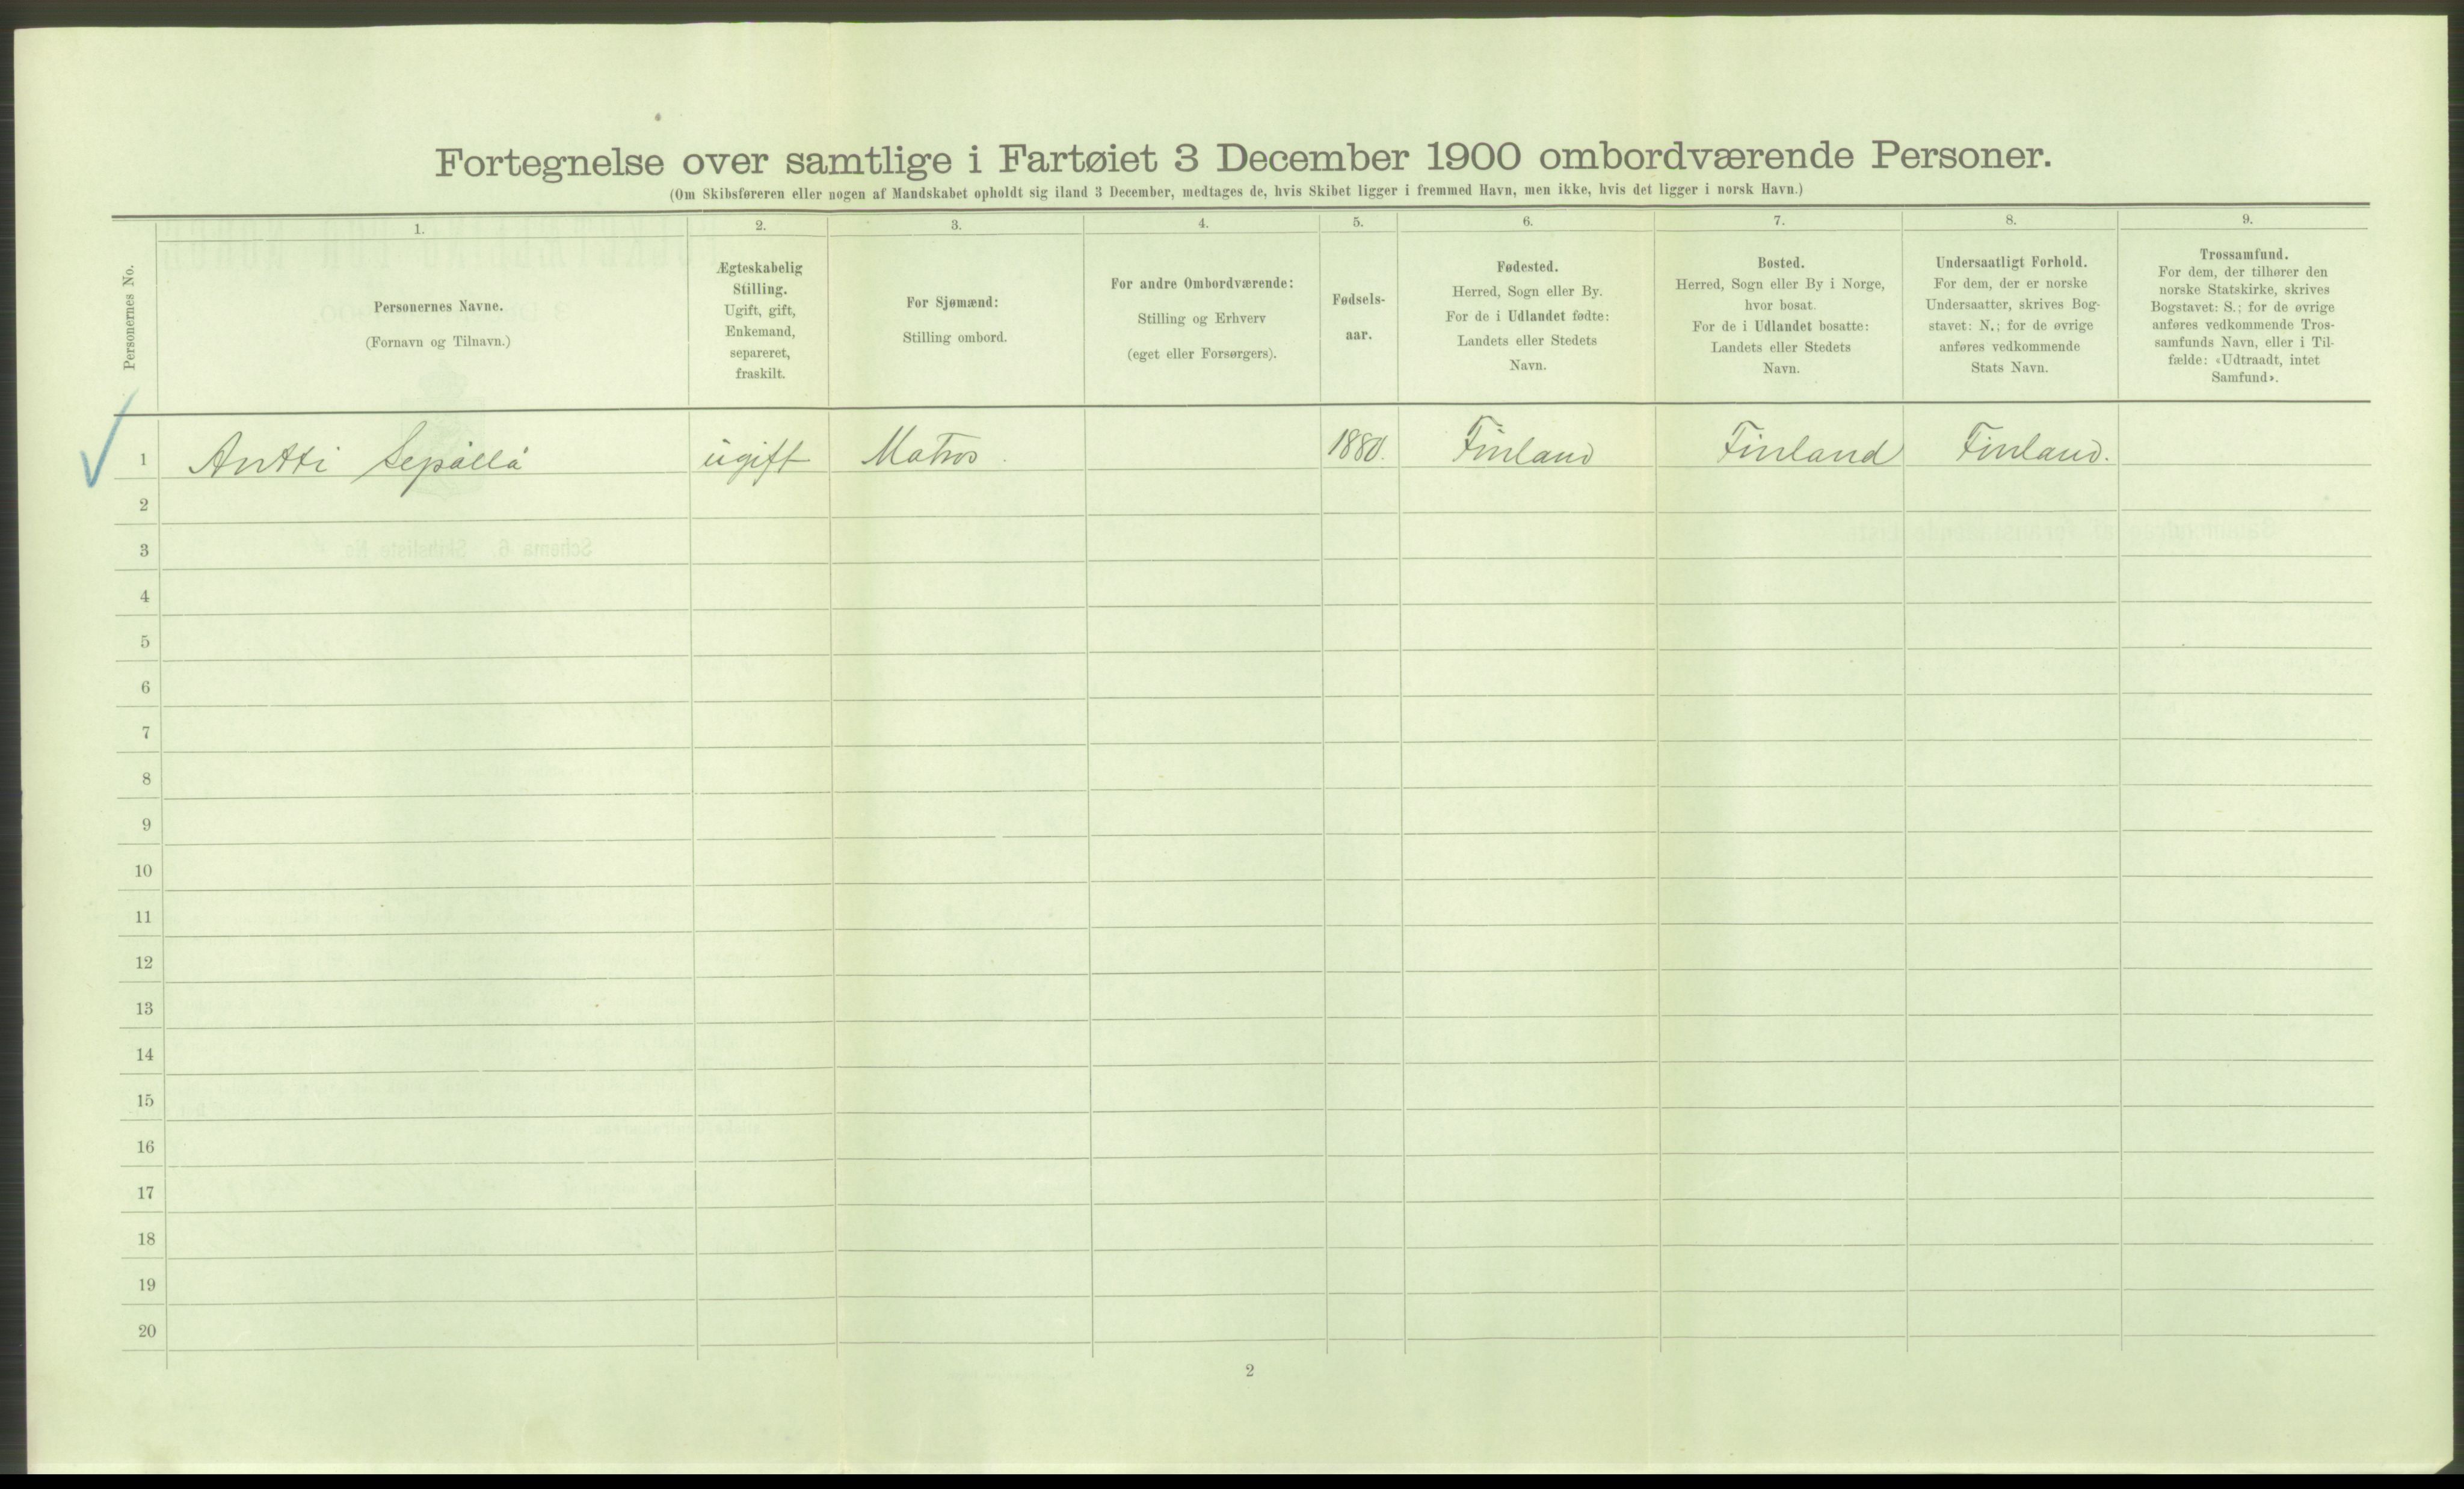 Fortegnelse over samtlige i Fartøiet 3 December 1900 ombordværende Personer.
(Om Skibsføreren eller nogen af Mandskabet opholdt sig iland 3 December, medtages de, hvis Skibet ligger i fremmed Havn, men ikke, hvis det ligger i norsk Havn.)
Personernes No.
1.
Personernes Navne.
(Fornavn og Tilnavn.)
2.
Ægteskabelig
Stilling.
Ugift, gift,
Enkemand,
separeret,
fraskilt.
3.
For Sjømænd:
Stilling ombord.
4.
For andre Ombordværende:
Stilling og Erhverv
(eget eller Forsørgers).
5.
Fødsels-
aar.
6.
Fødested.
Herred, Sogn eller By.
For de i Udlandet fødte:
Landets eller Stedets
Navn.
7.
Bosted.
Herred, Sogn eller By i Norge,
hvor bosat.
For de i Udlandet bosatte:
Landets eller Stedets
Navn.
8.
Undersaatligt Forhold.
For dem, der er norske
Undersaatter, skrives Bog-
stavet: N.; for de øvrige
anføres vedkommende
Stats Navn.
9.
Trossamfund.
For dem, der tilhører den
norske Statskirke, skrives
Bogstavet: S.; for de øvrige
anføres vedkommende Tros-
samfunds Navn, eller i Til-
fælde: «Udtraadt, intet
Samfund».
1 Antti Sepällä ugift Matros. 1880. Finland Finland Finland.
2
3
4
5
6
7
8
9
10
11
12
13
14
15
16
17
18
19
20
2